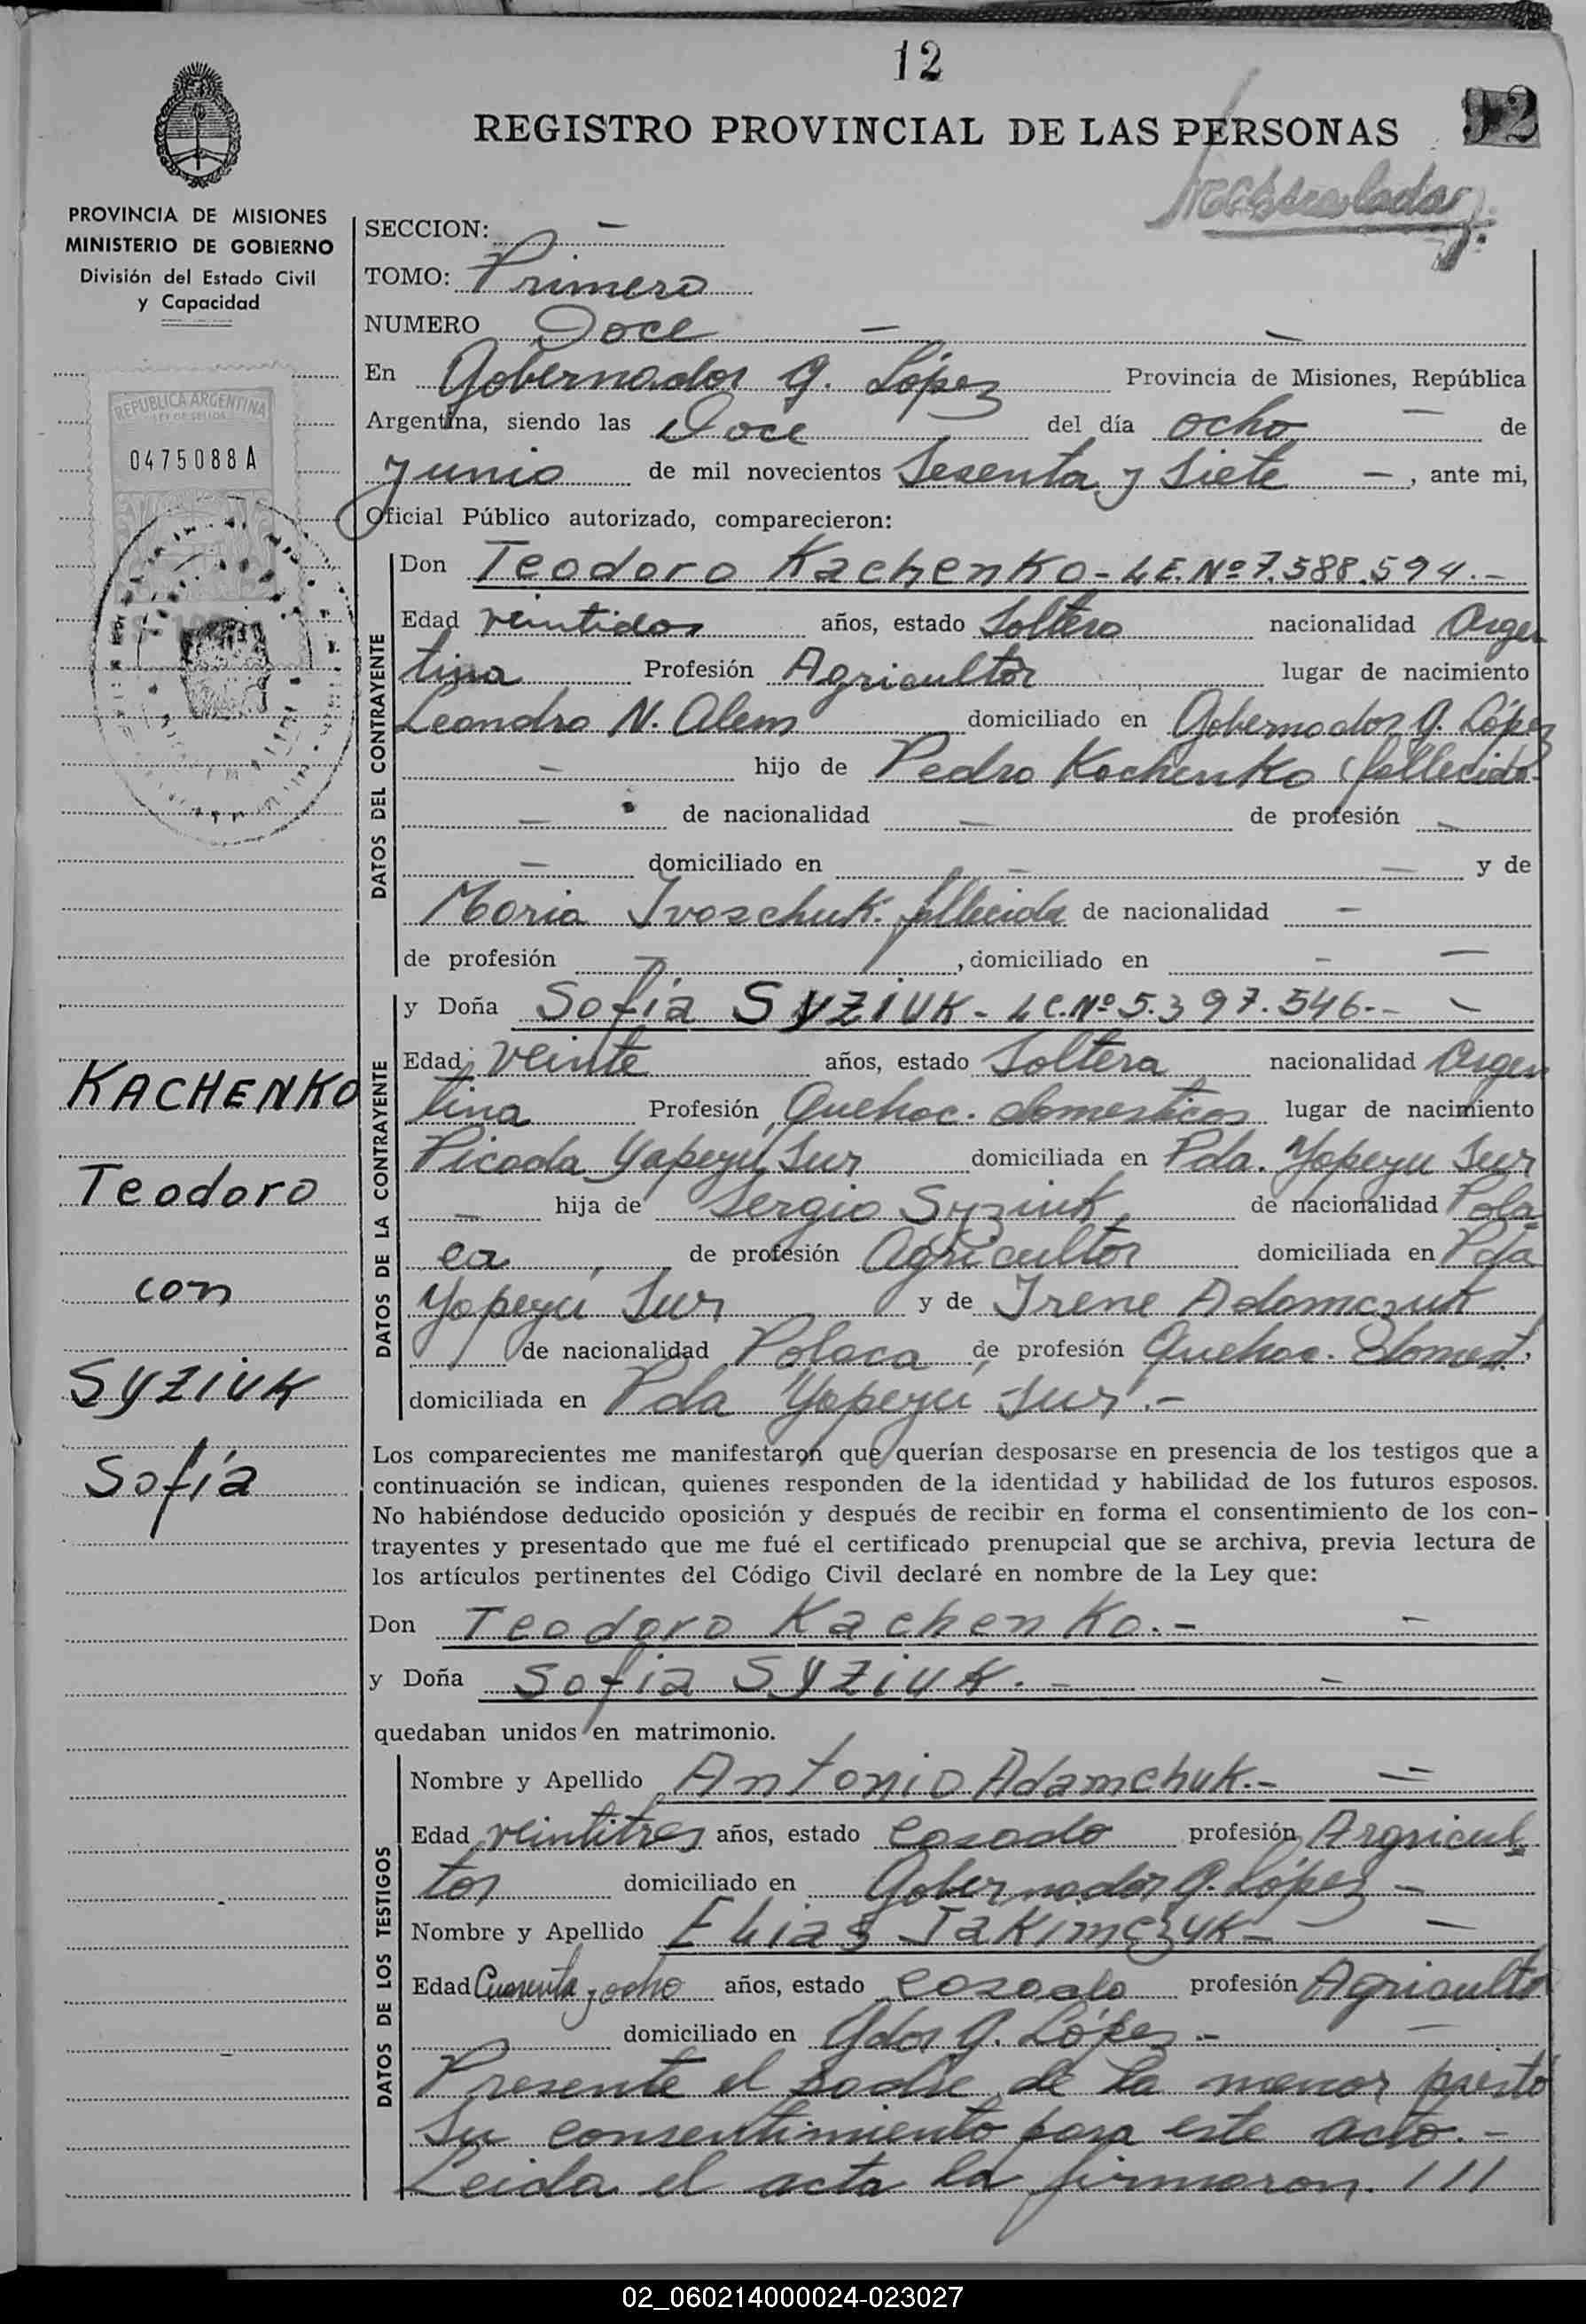 12
REGISTRO PROVINCIAL DE LAS PERSONAS
12
PROVINCIA DE MISIONES
MINISTERIO DE GOBIERNO
División del Estado Civil
y Capacidad
REPUBLICA ARGENTINA
LEY DE SELLOS
0475088A
KACHENKO
Teodoro
con
SYZIUK
Sofía
SECCION: —
TOMO: Primero
NUMERO Doce — —
En Gobernador G. López Provincia de Misiones, República
Argentina, siendo las Doce del día ocho — de
junio de mil novecientos Sesenta y Siete —, ante mi,
Oficial Público autorizado, comparecieron:
DATOS DEL CONTRAYENTE
Don Teodoro Kachenko - L.E. Nº 7.588.594.-
Edad veintidos años, estado Soltero nacionalidad Argen
tina Profesión Agricultor lugar de nacimiento
Leandro N. Alem domiciliado en Gobernador G. López
— hijo de Pedro Kachenko (fallecido
— de nacionalidad — de profesión —
— domiciliado en — — y de
Maria Ivaschuk. fallecida de nacionalidad —
de profesión —, domiciliado en - —
DATOS DE LA CONTRAYENTE
y Doña Sofía SYZIUK - L.C. Nº 5.397.546.- —
Edad veinte años, estado Soltera nacionalidad Argen
tina Profesión Quehac. domesticos lugar de nacimiento
Picada Yapeyú Sur domiciliada en Pda. Yapeyu Sur
— hija de Sergio Syziuk de nacionalidad Pola
ca de profesión Agricultor domiciliada en Pda
Yapeyú Sur y de Irene Adamczuk
de nacionalidad Polaca de profesión Quehac. Domest.
domiciliada en Pda Yapeyú Sur.-
Los comparecientes me manifestaron que querían desposarse en presencia de los testigos que a
continuación se indican, quienes responden de la identidad y habilidad de los futuros esposos.
No habiéndose deducido oposición y después de recibir en forma el consentimiento de los con-
trayentes y presentado que me fué el certificado prenupcial que se archiva, previa lectura de
los artículos pertinentes del Código Civil declaré en nombre de la Ley que:
Don Teodoro Kachenko.- —
y Doña Sofía SYZIUK. - —
quedaban unidos en matrimonio.
DATOS DE LOS TESTIGOS
Nombre y Apellido Antonio Adamchuk.- —
Edad veintitres años, estado casado profesión Argricul
tor domiciliado en Gobernador G. López -
Nombre y Apellido Elias Jakimczuk - —
Edad Cuarenta y ocho años, estado casado profesión Agricultor
domiciliado en Gdor G. López.- —
Presente el padre de la menor prestó
su consentimiento para este acto.-
Leida el acta la firmaron. ///
02_060214000024-023027